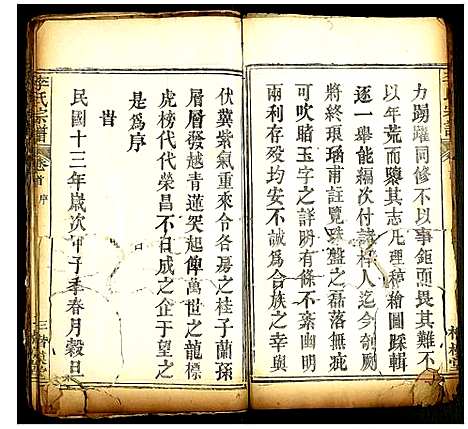 力踴躍同修不以事鉅而畏其難不
以年荒而隳其志凡理稿繪圖踩輯
逐一舉能編次付諸梓人迄今剞劂
將終琅瑀甫註覽珠盤之磊落無疵
可吹賭玉字之詳勝有條不紊幽明
兩利存歿均安不誠為合族之幸與
伏冀紫氣重來令各房之桂子蘭孫
層層發越青蓮突起俾萬世之龍標
虎榜代代榮昌不日成之企于望之
是為序
旹
民國十三年歲次甲子季春月穀日
李氏宗譜 卷首 序